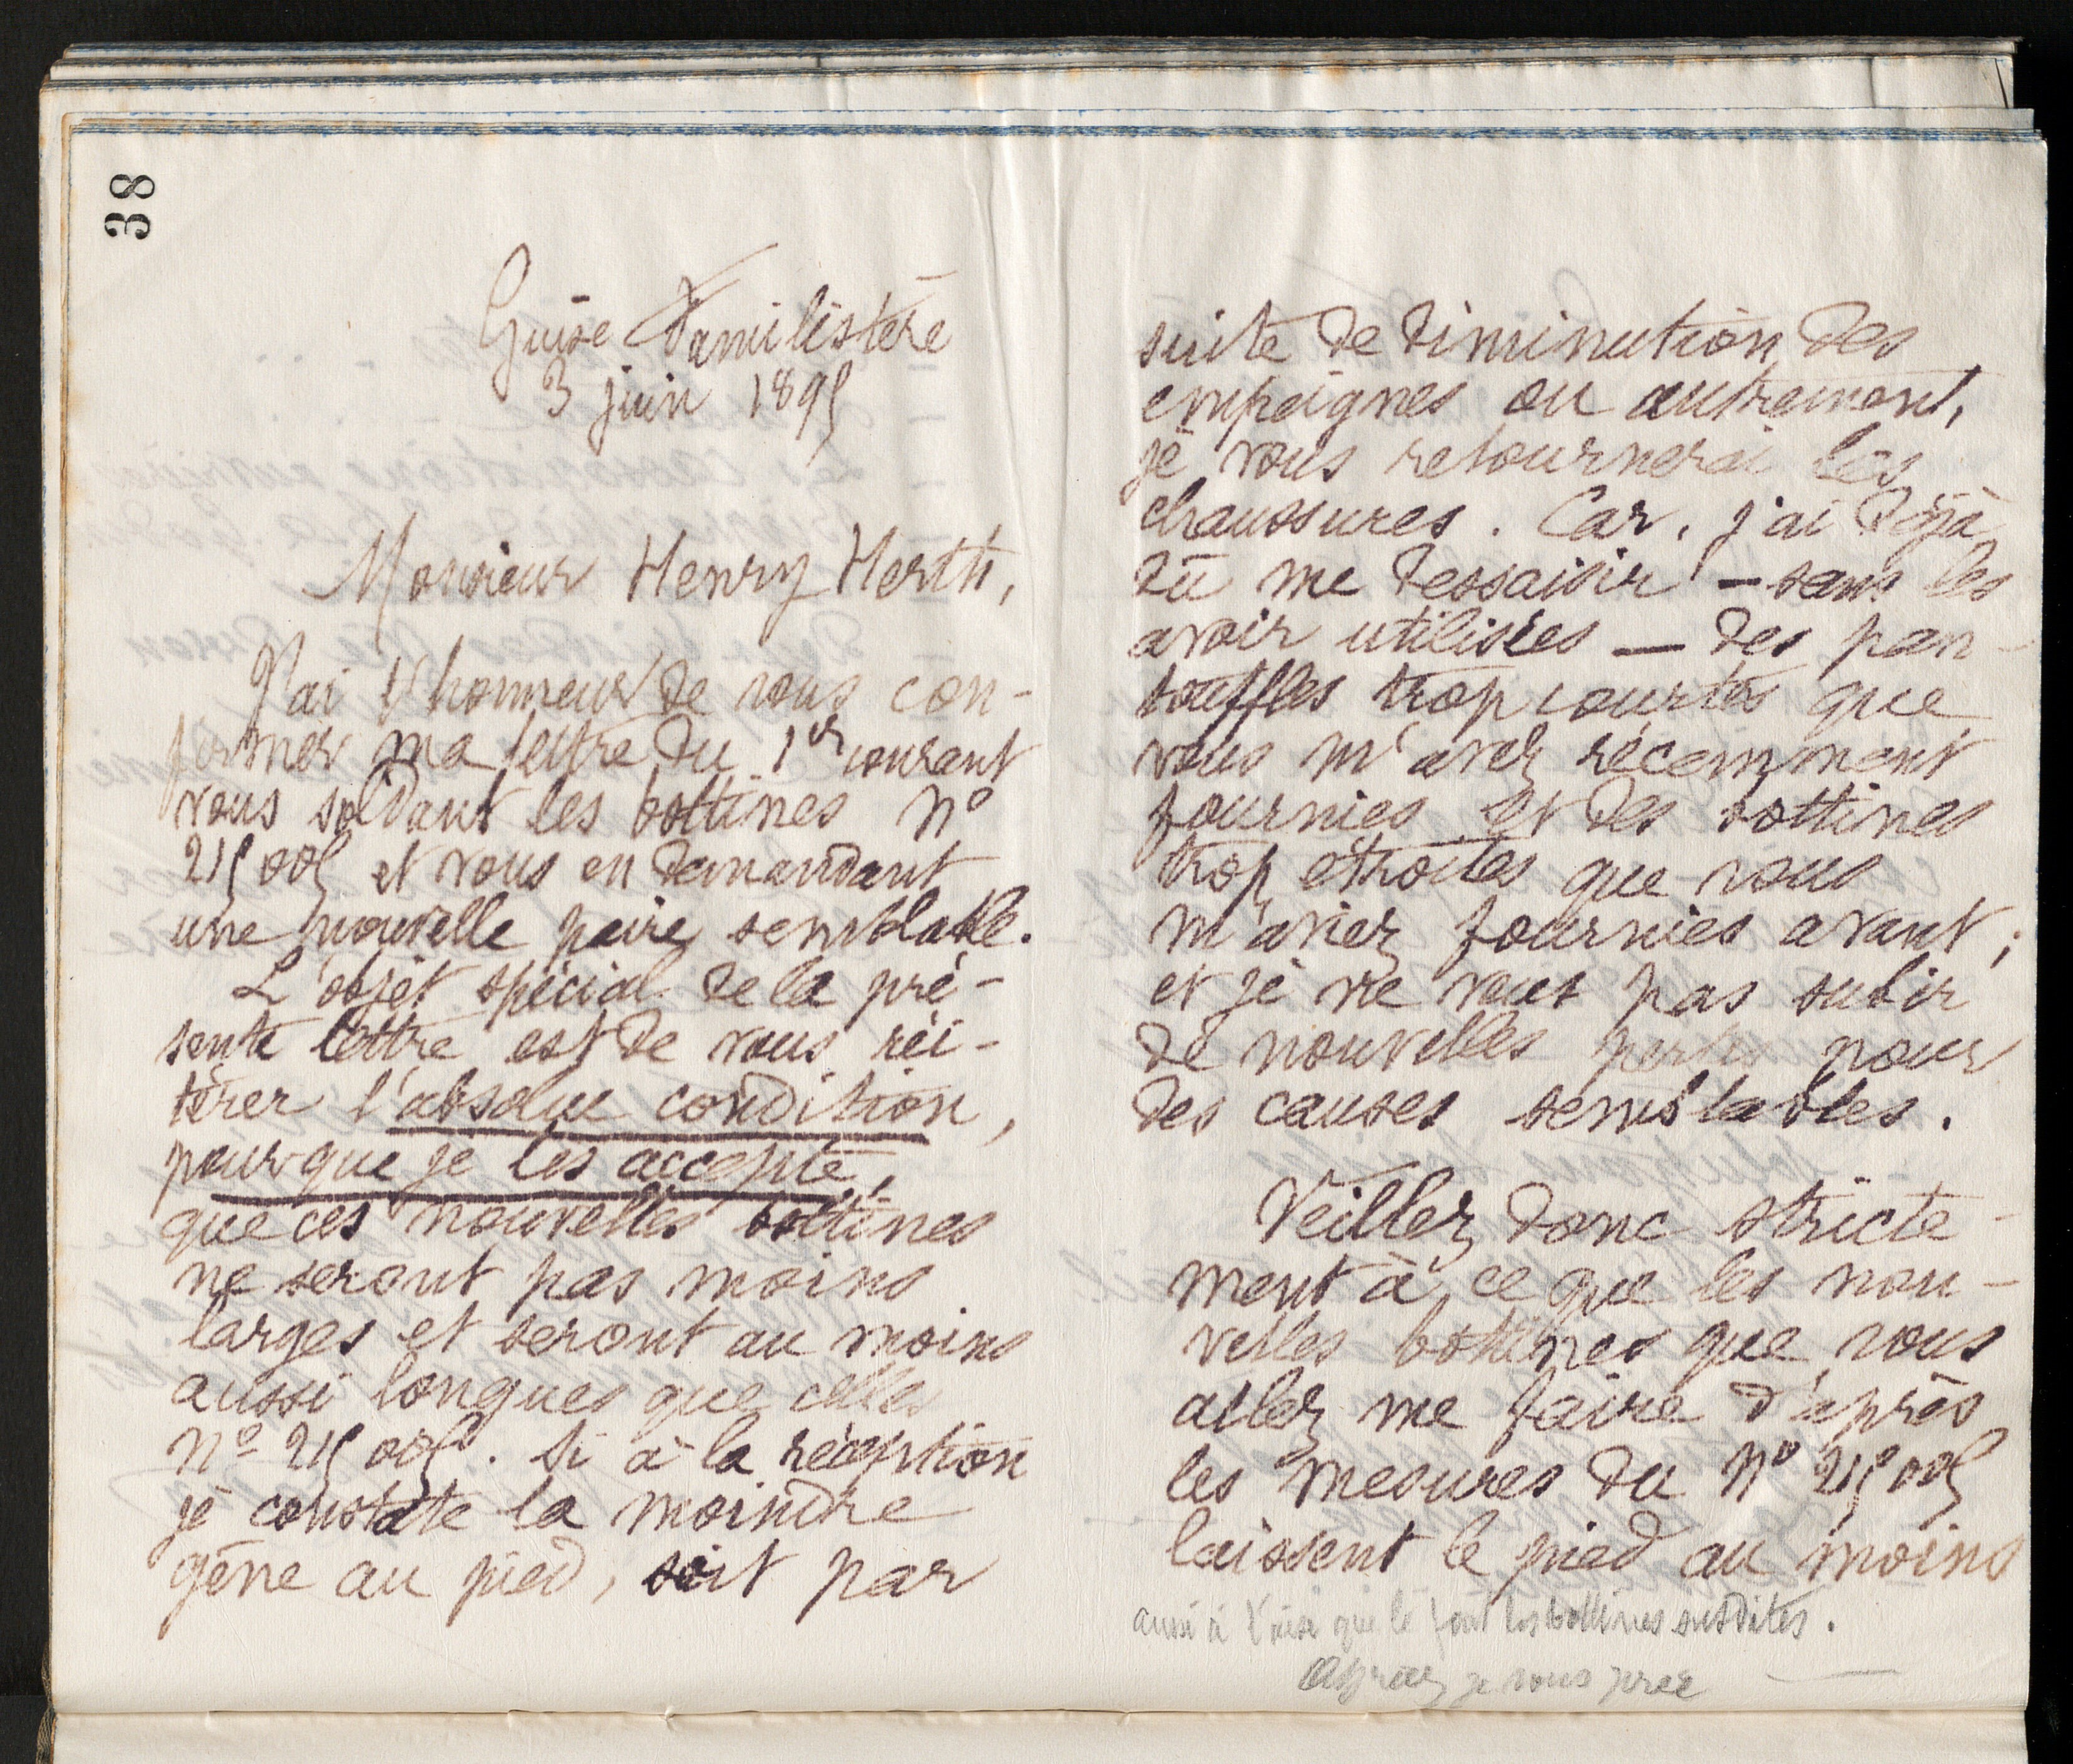 38
Guise Familistère
3 juin 1895
Monsieur Henry Herth,
J'ai l'honneur de vous con-
firmer ma lettre du 1er courant
vous soldant les bottines No
215005 et vous en demandant
une nouvelle paire semblable.
L'objet spécial de la pré-
sente lettre est de vous réi-
térer l'absolue condition,
pour que je les accepte,
que ces nouvelles bottines
ne seront pas moins
larges et seront au moins
aussi longues que celles
No 215005. Si à la réception
je constate la moindre
gêne au pied, soit par
suite de diminution des
empeignes ou autrement,
je vous retournerai les
chaussures. Car, j'ai déjà
dû me dessaisir — sans les
avoir utilisées — des pan-
touffles trop courtes que
vous m'avez récemment
fournies et des bottines
trop étroites que vous
m'aviez fournies avant ;
et je ne veux pas subir
de nouvelles pertes pour
des causes semblables.
Veillez donc stricte-
ment à ce que les nou-
velles bottines que vous
allez me faire d'après
les mesures du No 215005
laissent le pied au moins
aussi à l'aise que le font les bottines susdites.
Agréez je vous prie —